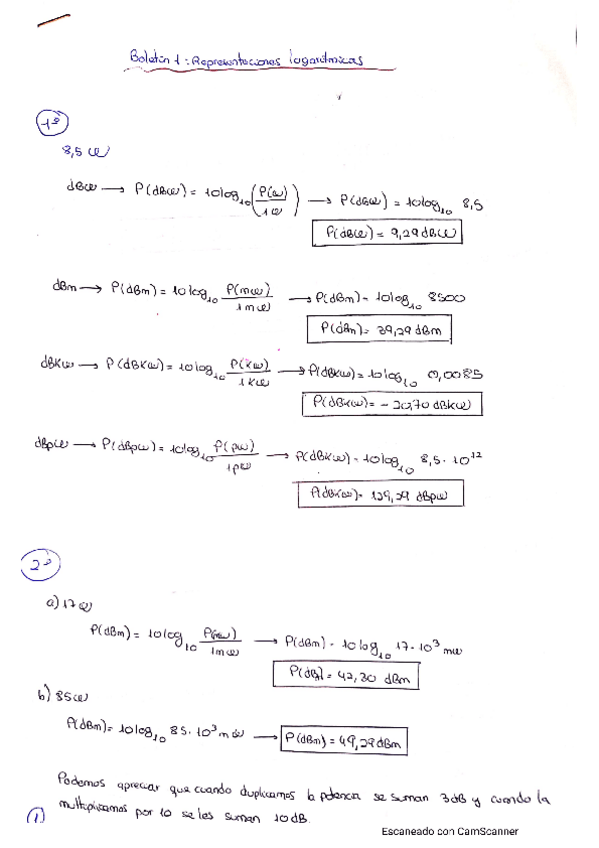 Boletín 1: Representaciones logarítmicas
1º
8,5 W
dBW → P(dBW) = 10log₁₀(P(W)/1W) → P(dBW) = 10log₁₀ 8,5
P(dBW) = 9,29 dBW
dBm → P(dBm) = 10log₁₀ P(mW)/1mW → P(dBm) = 10log₁₀ 8500
P(dBm) = 39,29 dBm
dBKW → P(dBKW) = 10log₁₀ P(KW)/1KW → P(dBKW) = 10log₁₀ 0,0085
P(dBKW) = -20,70 dBKW
dBpW → P(dBpW) = 10log₁₀ P(pW)/1pW → P(dBKW) = 10log₁₀ 8,5·10¹²
P(dBKW) = 129,29 dBpW
2º
a) 17W
P(dBm) = 10log₁₀ P(mW)/1mW → P(dBm) = 10log₁₀ 17·10³ mW
= 42,30 dBm
b) 85W
P(dBm) = 10log₁₀ 85·10³ mW → P(dBm) = 49,29dBm
Podemos apreciar que cuando duplicamos la potencia se suman 3dB y cuando la
multiplicamos por 10 se les suman 10dB.
1
Escaneado con CamScanner